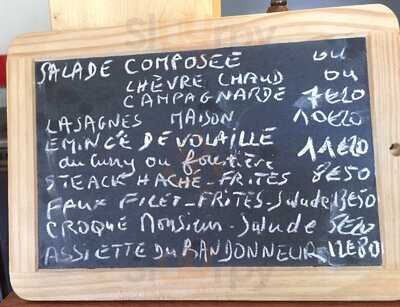 SALADE COMPOSÉE ou
CHÈVRE CHAUD ou
CAMPAGNARDE 7€20
LASAGNES MAISON 10€20
EMINCÉ DE VOLAILLE 11€20
du Curry ou forestière
STEACK HACHÉ - FRITES 8€50
FAUX FILET - FRITES - Salade 13€50
CROQUE Monsieur - Salade
ASSIETTE DU RANDONNEUR 12€80